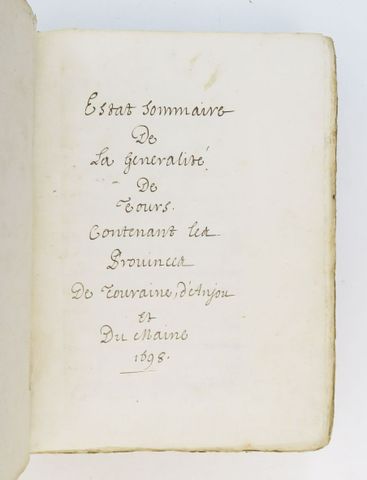 Estat Sommaire
De
La Generalité
De
Tours.
Contenant les
Prouinces
De Touraine, d'Anjou
et
Du Maine
1698.